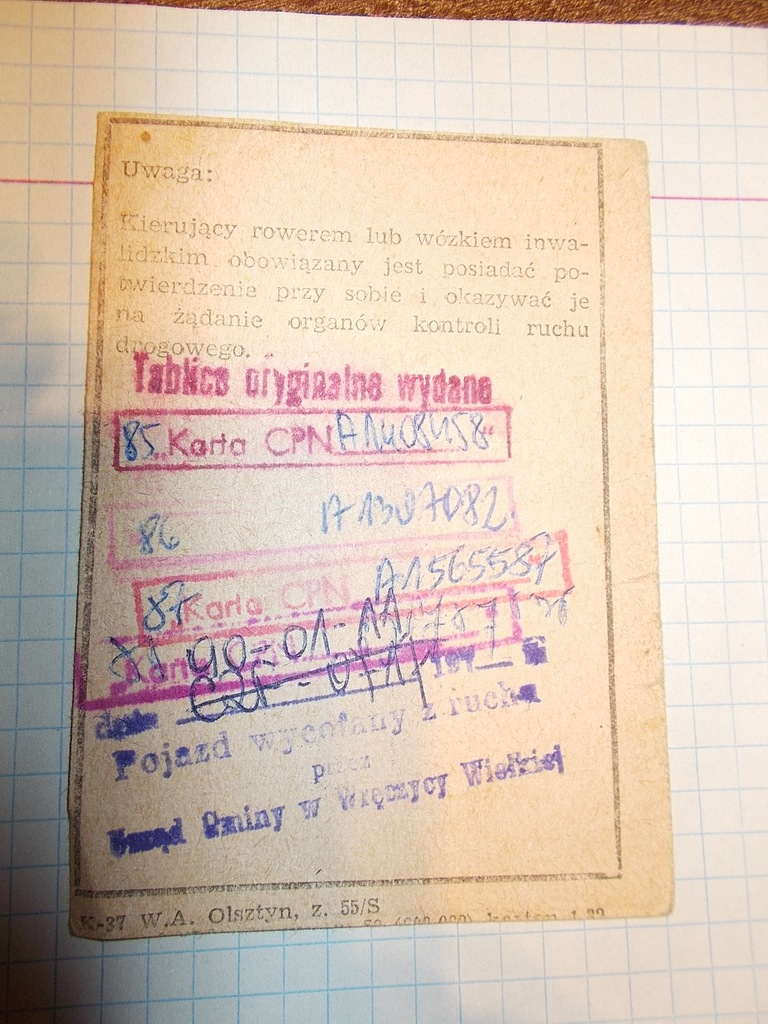 Uwaga:
Kierujący rowerem lub wózkiem inwa-
lidzkim obowiązany jest posiadać po-
twierdzenie przy sobie i okazywać je
na żądanie organów kontroli ruchu
drogowego.
Tablice oryginalne wydane
85 Karta CPN A1408458
86 A1307082
87 Karta CPN A1565587
90-01-11
dnia
Pojazd wycofany z ruchu
przez
Urząd Gminy w Wręczycy Wielkiej
K-37 W.A. Olsztyn, z. 55/S